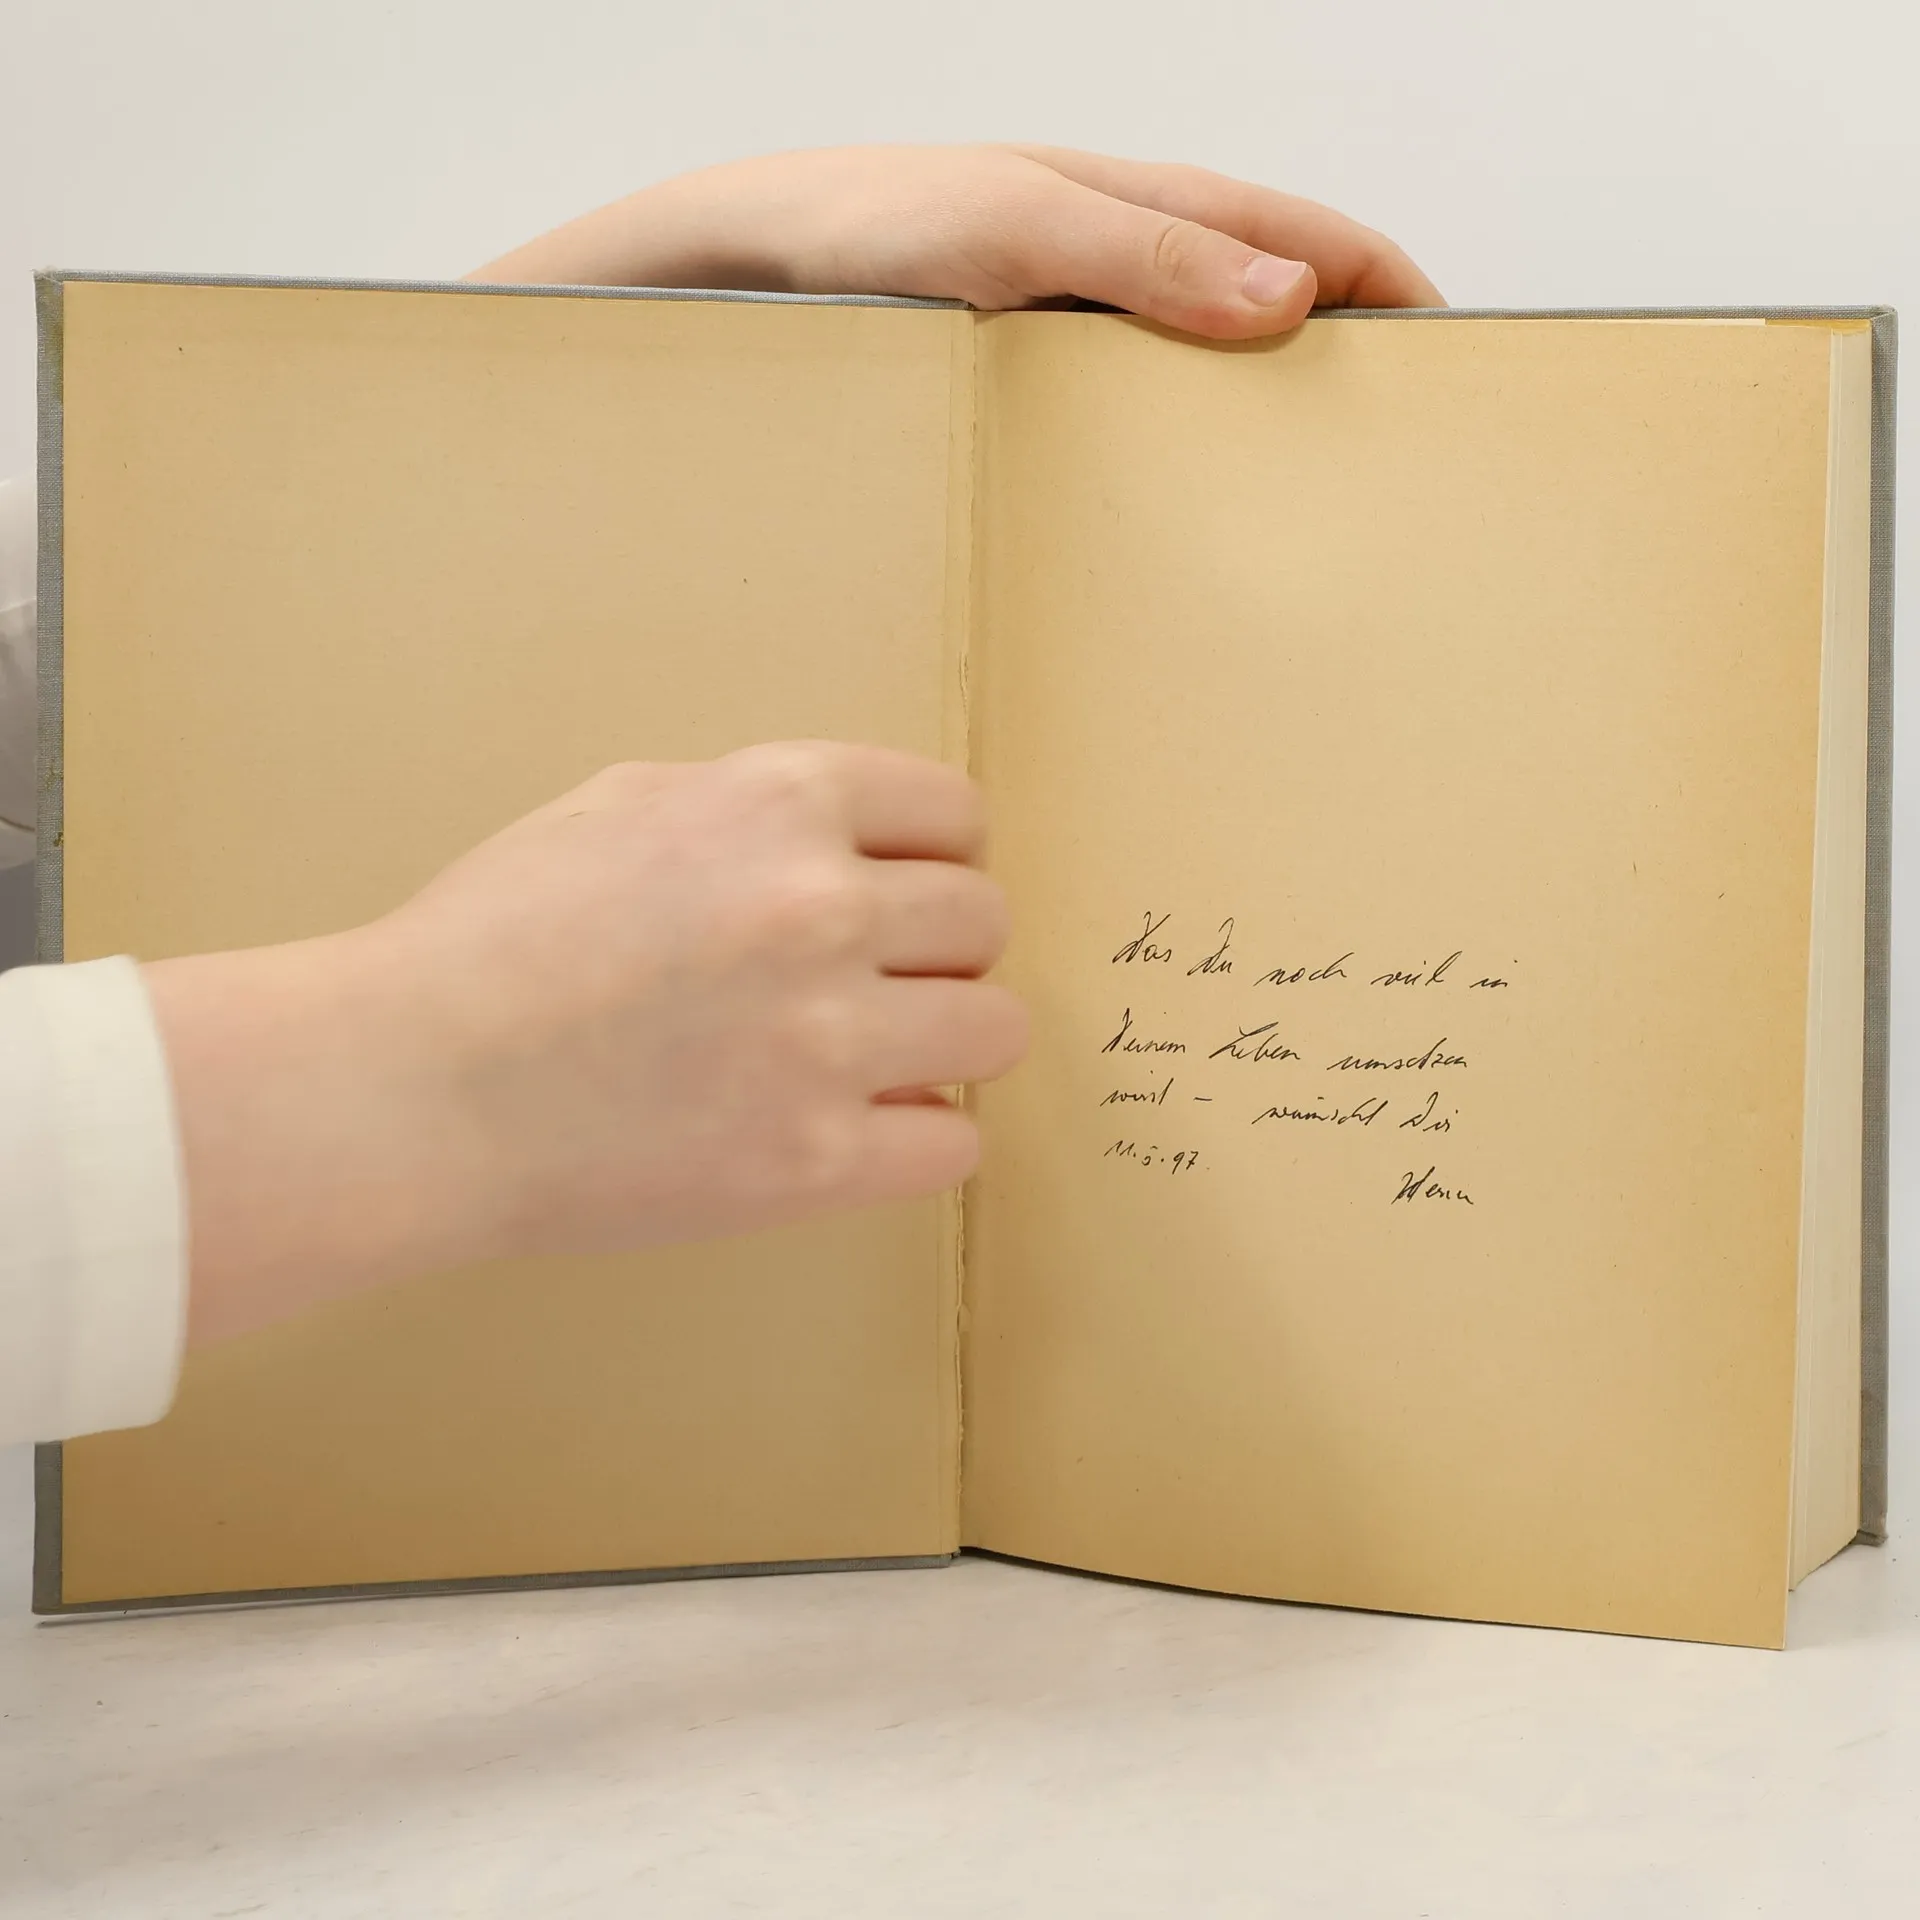 Das Du noch viel in
Deinem Leben umsetzen
wirst – wünscht Dir
11.5.97.